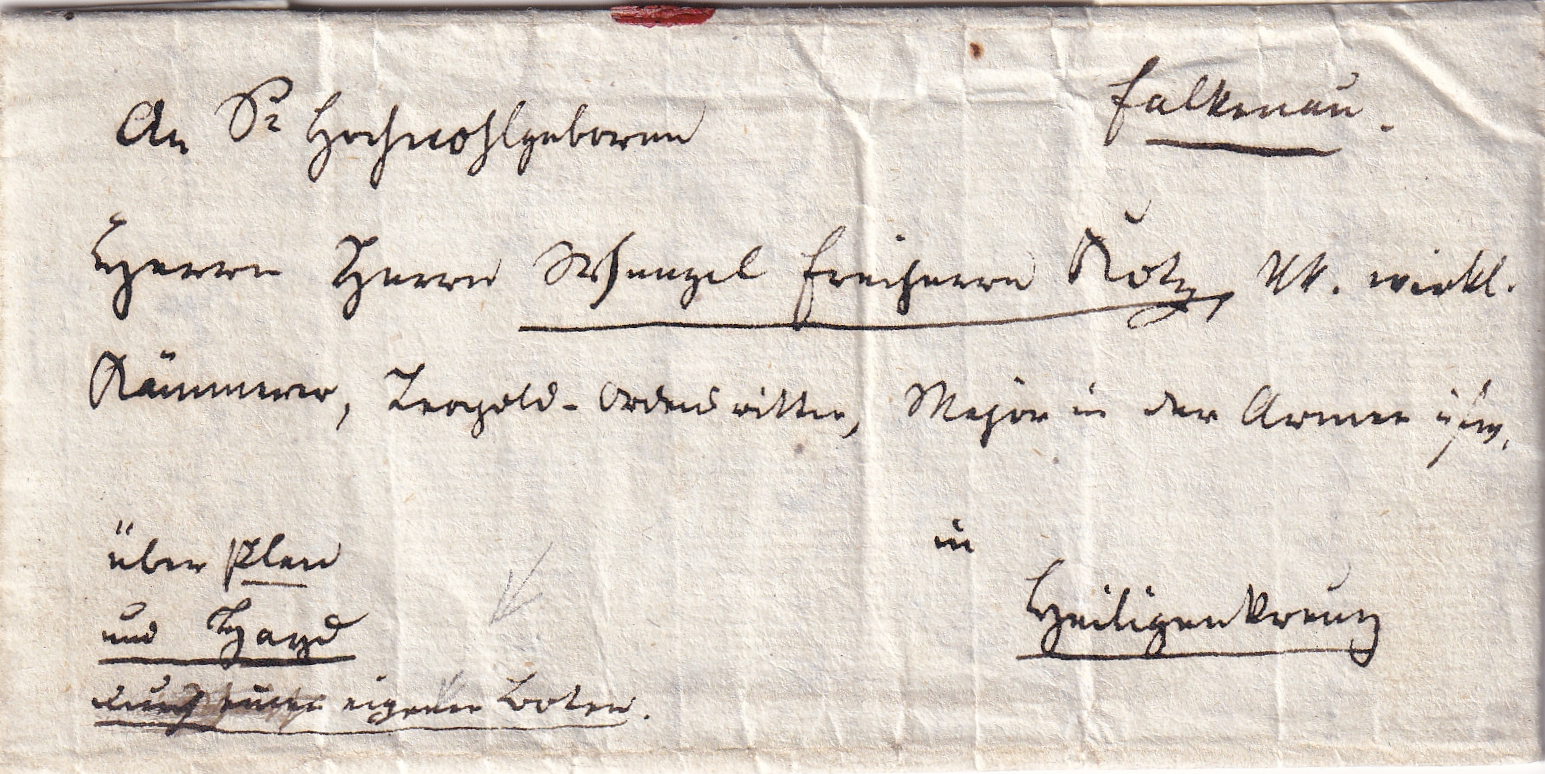 Falkenau.
An Sr Hochwohlgeboren
Herrn Herrn Wenzel Freiherrn Kotz, kk. wirkl.
Kämmerer, Leopold-Ordensritter, Major in der Armee usw.
in
Heiligenkreutz
über Plan
und Hayd
durch eigenen Boten.